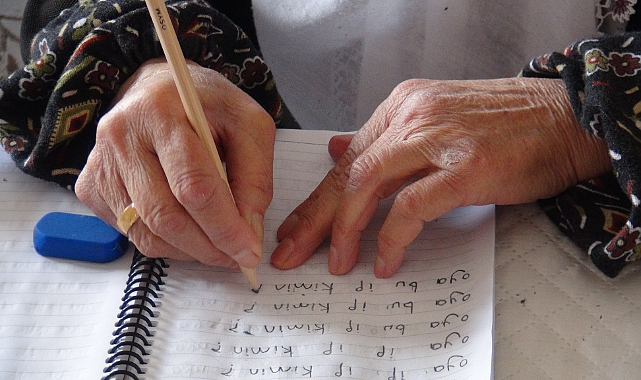 oya ip ip kimin ?
oya ip ip kimin ?
oya bu ip kimin ?
oya bu ip kimin ?
oya bu ip kimin